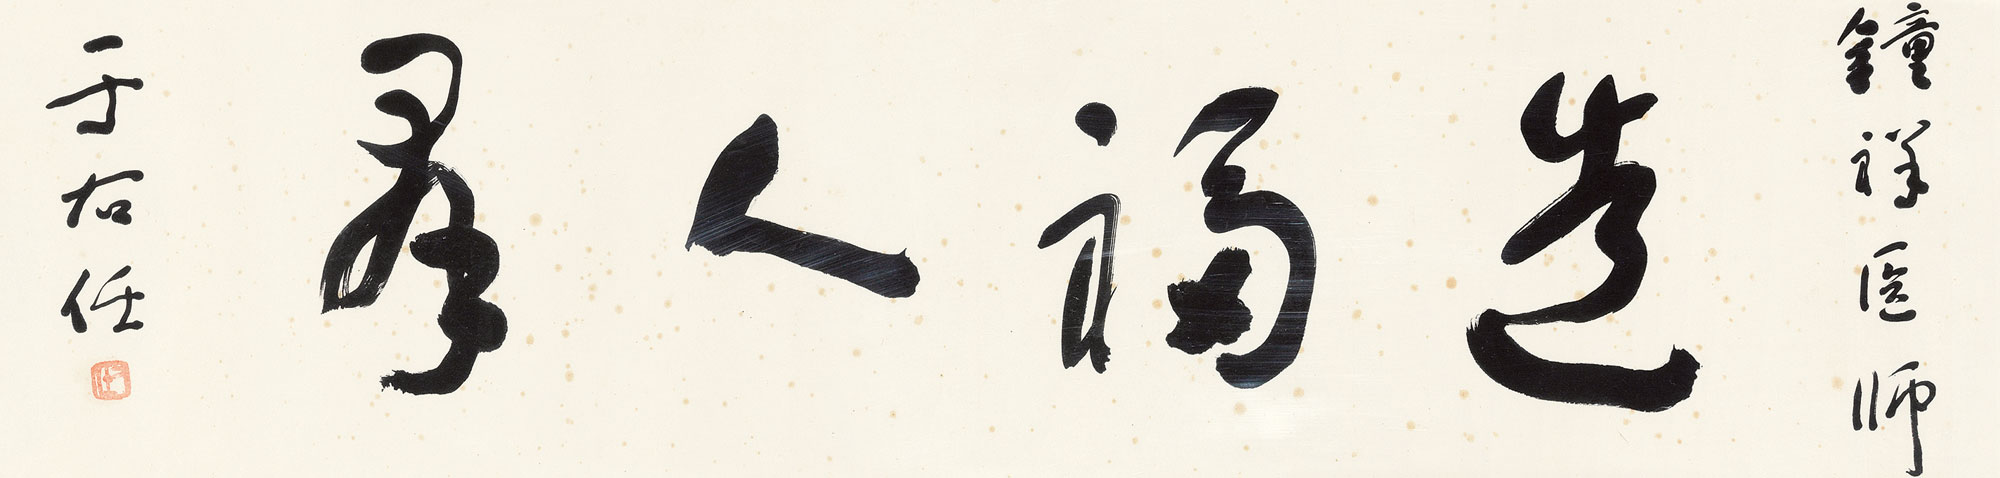 鐘祥医师
造福人羣
于右任